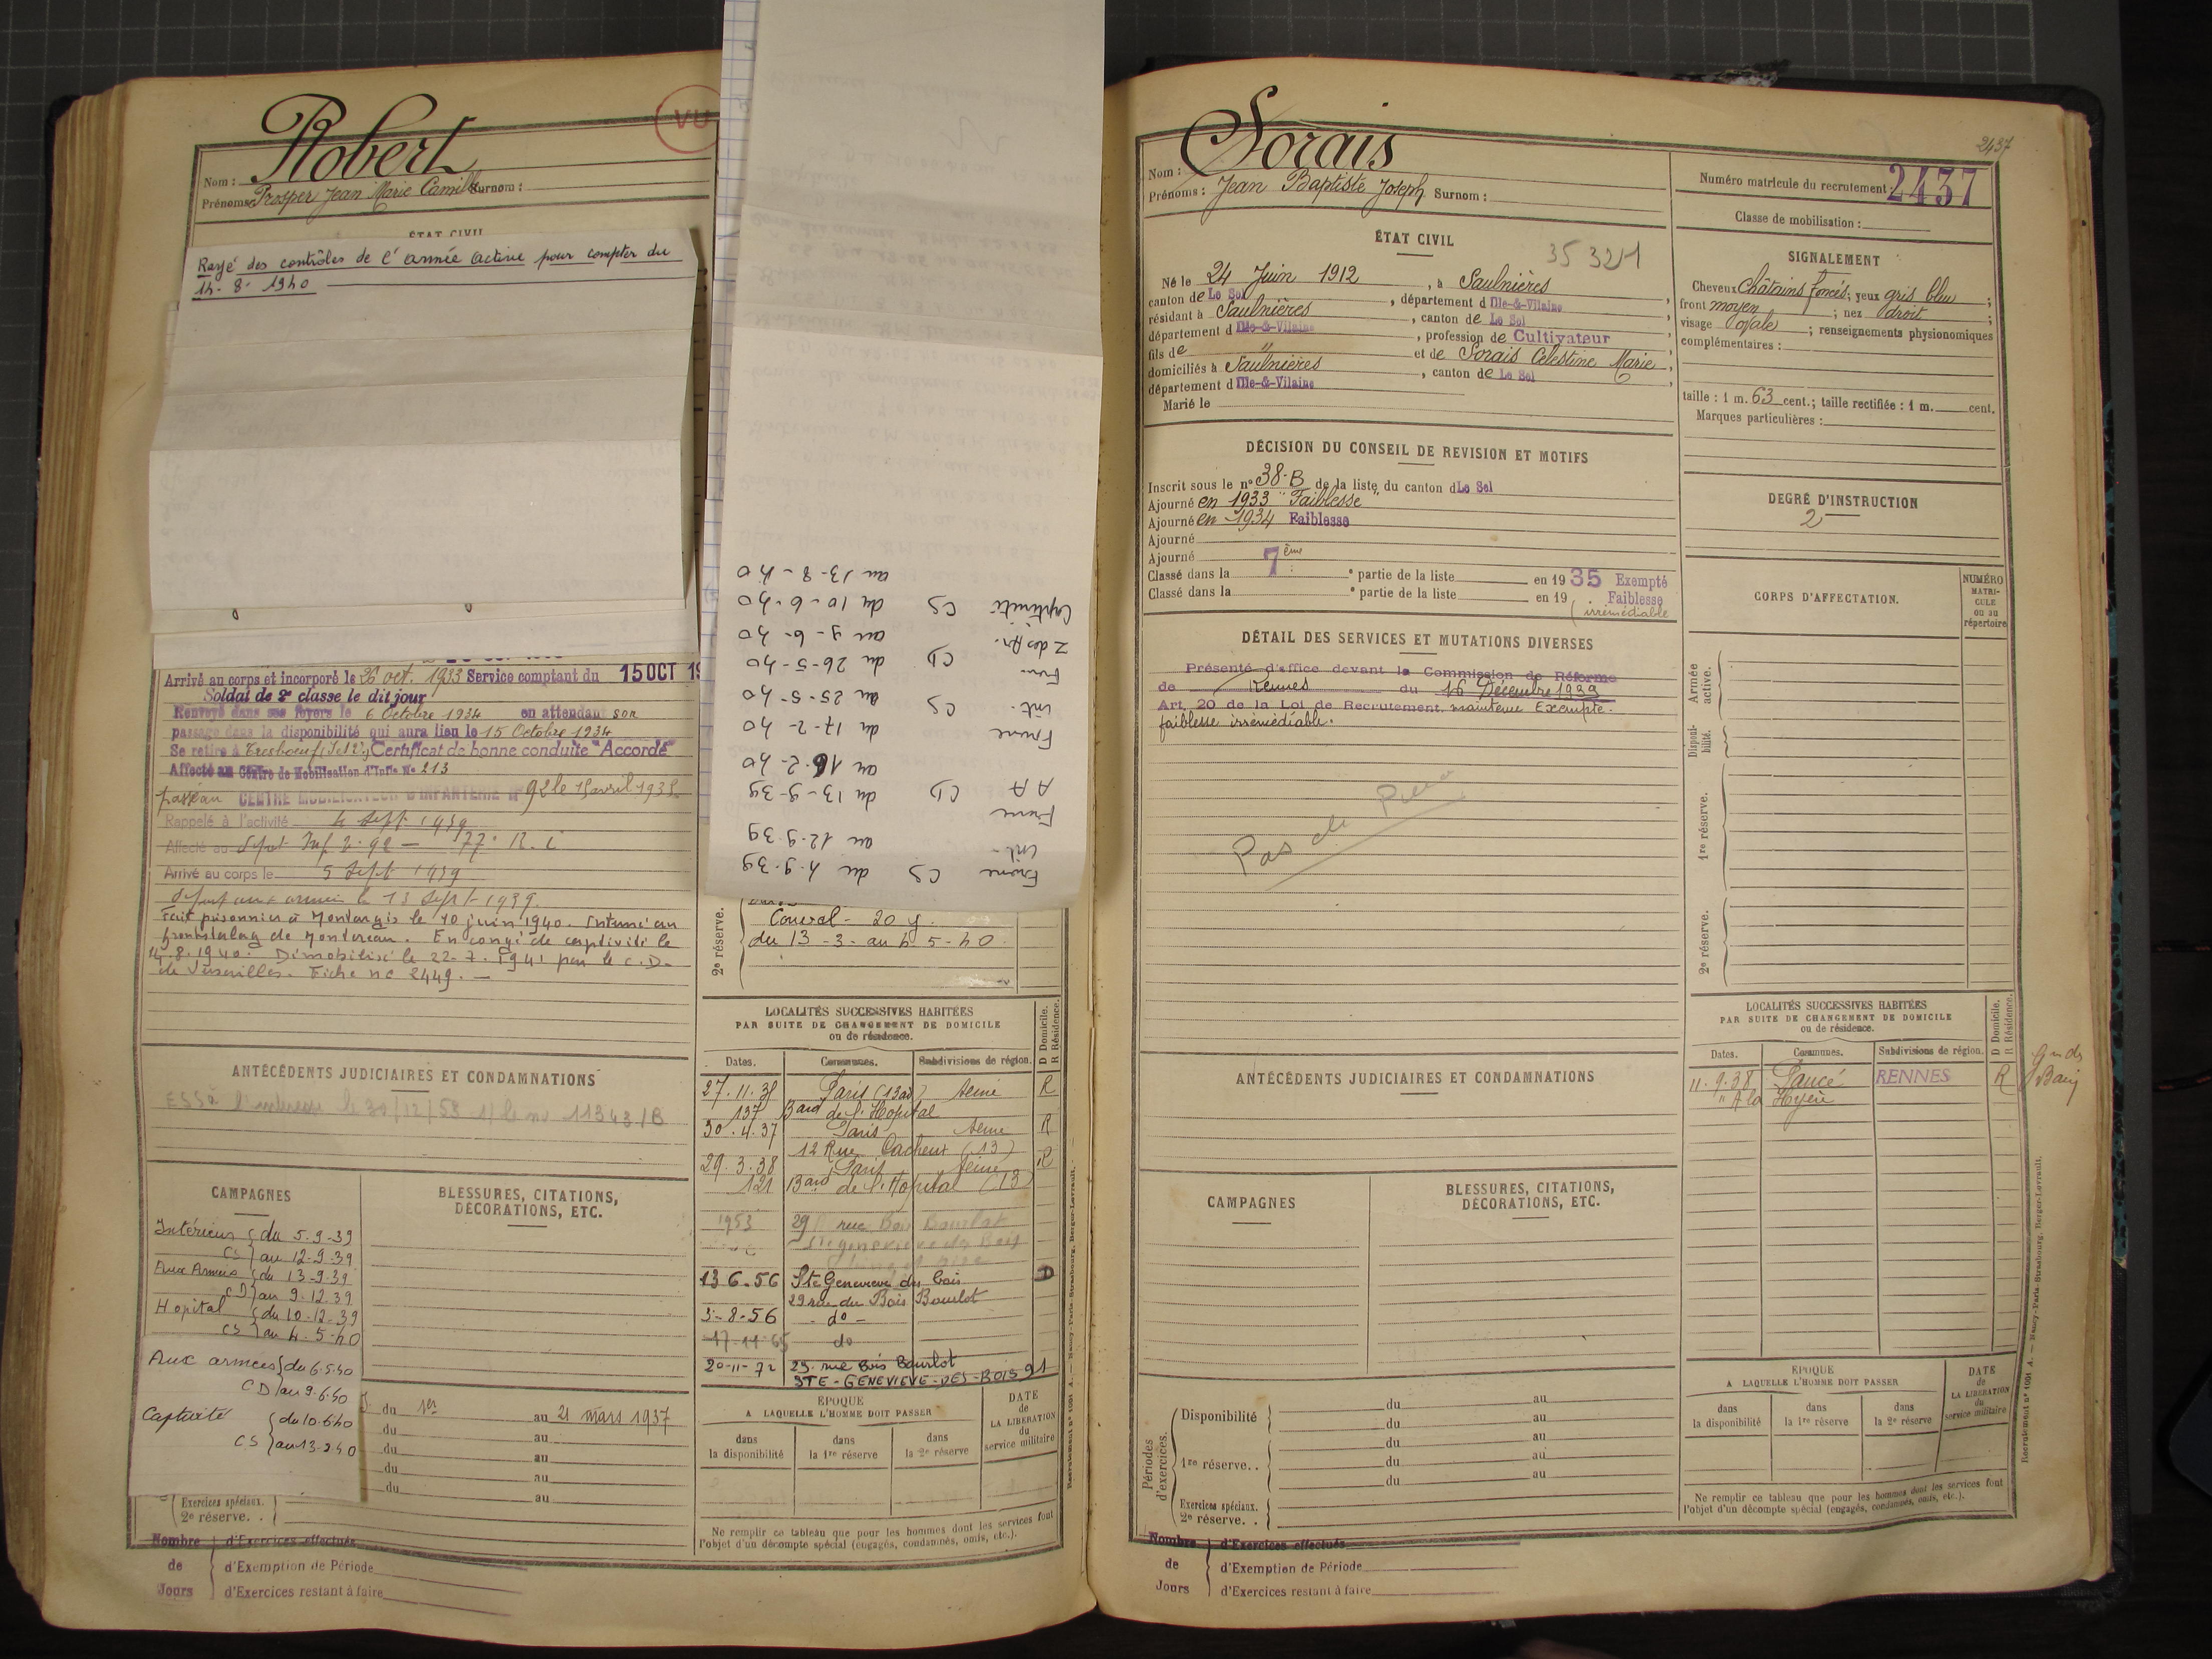 Robert
VU
Nom :
Prénoms Prosper Jean Marie Camille Surnom :
ÉTAT CIVIL
Rayé des contrôles de l'armée active pour compter du
14-8-1940
Arrivé au corps et incorporé le 20 oct. 1933 Service comptant du 15 OCT 19
Soldat de 2e classe le dit jour
Renvoyé dans ses foyers le 6 Octobre 1934 en attendant son
passage dans la disponibilité qui aura lieu le 15 Octobre 1934
Se retire à Tresboeuf (I et V) Certificat de bonne conduite "Accordé"
Affecté au Centre de Mobilisation d'Infie No 213
passé au CENTRE MOBILISATEUR D'INFANTERIE No 92 le 15 avril 1938
Rappelé à l'activité 4 Sept 1939
Affecté au dépôt Inf 292 — 77e R. I
Arrivé au corps le 5 Sept 1939
départ aux armées le 13 Sept 1939.
Fait prisonnier à Montargis le 10 juin 1940. Interné au
frontstalag de Montereau. En congé de captivité le
14.8.1940. Démobilisé le 22.7.1941 par le C.D.
de Versailles. Fiche no 2449. —
ANTÉCÉDENTS JUDICIAIRES ET CONDAMNATIONS
ESS à l'intéressé le 30/12/58 s/ le no 11343/B
CAMPAGNES
Intérieur du 5-9-39
CS au 12-9-39
Aux Armées du 13-9-39
CD au 9.12.39
Hopital du 10-12-39
CS au 4-5-40
Aux armées du 6.5.40
CD au 9.6.40
Captivité du 10.6.40
CS au 13-2-40
BLESSURES, CITATIONS,
DÉCORATIONS, ETC.
du 1er au 21 mars 1937
du au
du au
du au
du au
Exercices spéciaux.
2e réserve. .
Nombre d'Exercices effectués
de d'Exemption de Période
Jours d'Exercices restant à faire
France CS du 4.9.39
int. au 12.9.39
France CD du 13-9-39
AA au 16.2-40
France CS du 17-2-40
int. au 25-5-40
Fran. CD du 26-5-40
Z des Ar. au 9-6-40
Captivité CS du 10-6-40
au 13-8-40
2e réserve.
Conval - 20 j.
du 13-3- au 4 5-40
LOCALITÉS SUCCESSIVES HABITÉES
PAR SUITE DE CHANGEMENT DE DOMICILE
ou de résidence.
D Domicile.
R Résidence.
Dates. Communes. Subdivisions de région.
27.11.35 Paris (13e) Seine R
137 Bard de l'Hopital
30.4.37 Paris Seine R
12 Rue Cacheux (13)
29.3.38 Paris Seine R
121 Bard de l'Hopital (13)
1953 29 rue Bois Bourlot
Ste Geneviève des Bois
13 6-56 Ste Geneviève des bois D
29 rue du Bois Bourlot
3-8-56 - do -
17-11-65 do
20-11-72 29. rue Bois Bourlot
STE-GENEVIEVE-DES-BOIS 91
ÉPOQUE
A LAQUELLE L'HOMME DOIT PASSER
dans la disponibilité
dans la 1re réserve
dans la 2e réserve
DATE de LA LIBÉRATION du service militaire
Ne remplir ce tableau que pour les hommes dont les services font
l'objet d'un décompte spécial (engagés, condamnés, omis, etc.).
Recrutement no 1091 A. — Nancy-Paris-Strasbourg, Berger-Levrault.
2437
Sorais
Nom :
Prénoms : Jean Baptiste Joseph Surnom :
Numéro matricule du recrutement : 2437
Classe de mobilisation :
ÉTAT CIVIL
35 321
Né le 24 Juin 1912, à Saulnières
canton de Le Sel, département d Ille-&-Vilaine,
résidant à Saulnières, canton de Le Sel,
département d Ille-&-Vilaine, profession de Cultivateur,
fils de " et de Sorais Célestine Marie,
domiciliés à Saulnières, canton de Le Sel,
département d Ille-&-Vilaine
Marié le
SIGNALEMENT
Cheveux Châtains foncés; yeux gris bleu;
front moyen; nez droit;
visage ovale; renseignements physionomiques
complémentaires :
taille : 1 m. 63 cent.; taille rectifiée : 1 m. cent.
Marques particulières :
DÉCISION DU CONSEIL DE REVISION ET MOTIFS
Inscrit sous le no 38-B de la liste du canton d Le Sel
Ajourné en 1933 "Faiblesse"
Ajourné en 1934 Faiblesse
Ajourné
Ajourné
Classé dans la 7ème e partie de la liste en 1935 Exempté
Classé dans la e partie de la liste en 19 Faiblesse
(irrémédiable
DEGRÉ D'INSTRUCTION
2
DÉTAIL DES SERVICES ET MUTATIONS DIVERSES
Présenté d'office devant la Commission de Réforme
de Rennes du 16 Décembre 1939
Art. 20 de la Loi de Recrutement. maintenu Exempté.
faiblesse irrémédiable.
Pas de
CORPS D'AFFECTATION.
NUMÉRO MATRICULE ou au répertoire
Armée active.
Disponibilité.
1re réserve.
2e réserve.
ANTÉCÉDENTS JUDICIAIRES ET CONDAMNATIONS
LOCALITÉS SUCCESSIVES HABITÉES
PAR SUITE DE CHANGEMENT DE DOMICILE
ou de résidence.
D Domicile.
R Résidence.
Dates. Communes. Subdivisions de région.
11.9.38 Sancé RENNES R
" A la
CAMPAGNES
BLESSURES, CITATIONS,
DÉCORATIONS, ETC.
Périodes d'exercices.
Disponibilité du au
du au
1re réserve. . du au
du au
du au
Exercices spéciaux.
2e réserve. .
ÉPOQUE
A LAQUELLE L'HOMME DOIT PASSER
dans la disponibilité
dans la 1re réserve
dans la 2e réserve
DATE de LA LIBÉRATION du service militaire
Ne remplir ce tableau que pour les hommes dont les services font
l'objet d'un décompte spécial (engagés, condamnés, omis, etc.).
Recrutement no 1091 A. — Nancy-Paris-Strasbourg, Berger-Levrault.
Nombre d'Exercices effectués
de d'Exemption de Période
Jours d'Exercices restant à faire